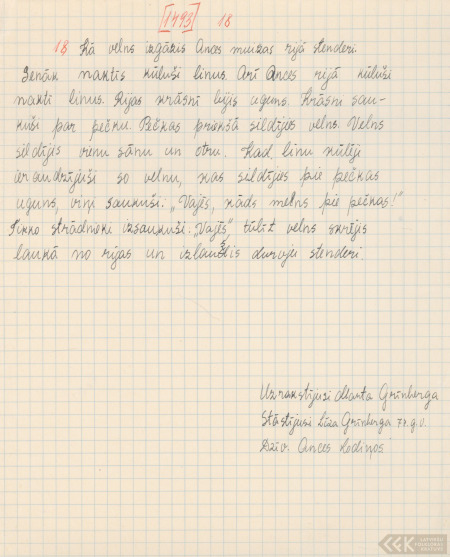 [1493] 18
18 Kā velns izgāzis Ances muižas rijā stenderi.
Senāk naktīs kūluši linus. Arī Ances rijā kūluši
naktī linus. Rijas krāsnī bijis uguns. Krāsni sau-
kuši par pečku. Pečkas priekšā sildījies velns. Velns
sildījis vienu sānu un otru. Kad linu kūlēji
ieraudzījuši so velnu, kas sildījies pie pečkas
uguns, viņi saukuši: „Vajēs, kāds melns pie pečkas!"
Tikko strādnieki izsaukuši: „Vajēs", tūlīt velns skrējis
laukā no rijas un izlauzis durvju stenderi.
Uzrakstījusi Marta Grīnberga
Stāstījusi Līza Grīnberga 72. g. v.
Dzīv. Ances Lodiņos
LATVIEŠU
FOLKLORAS
KRĀTUVE